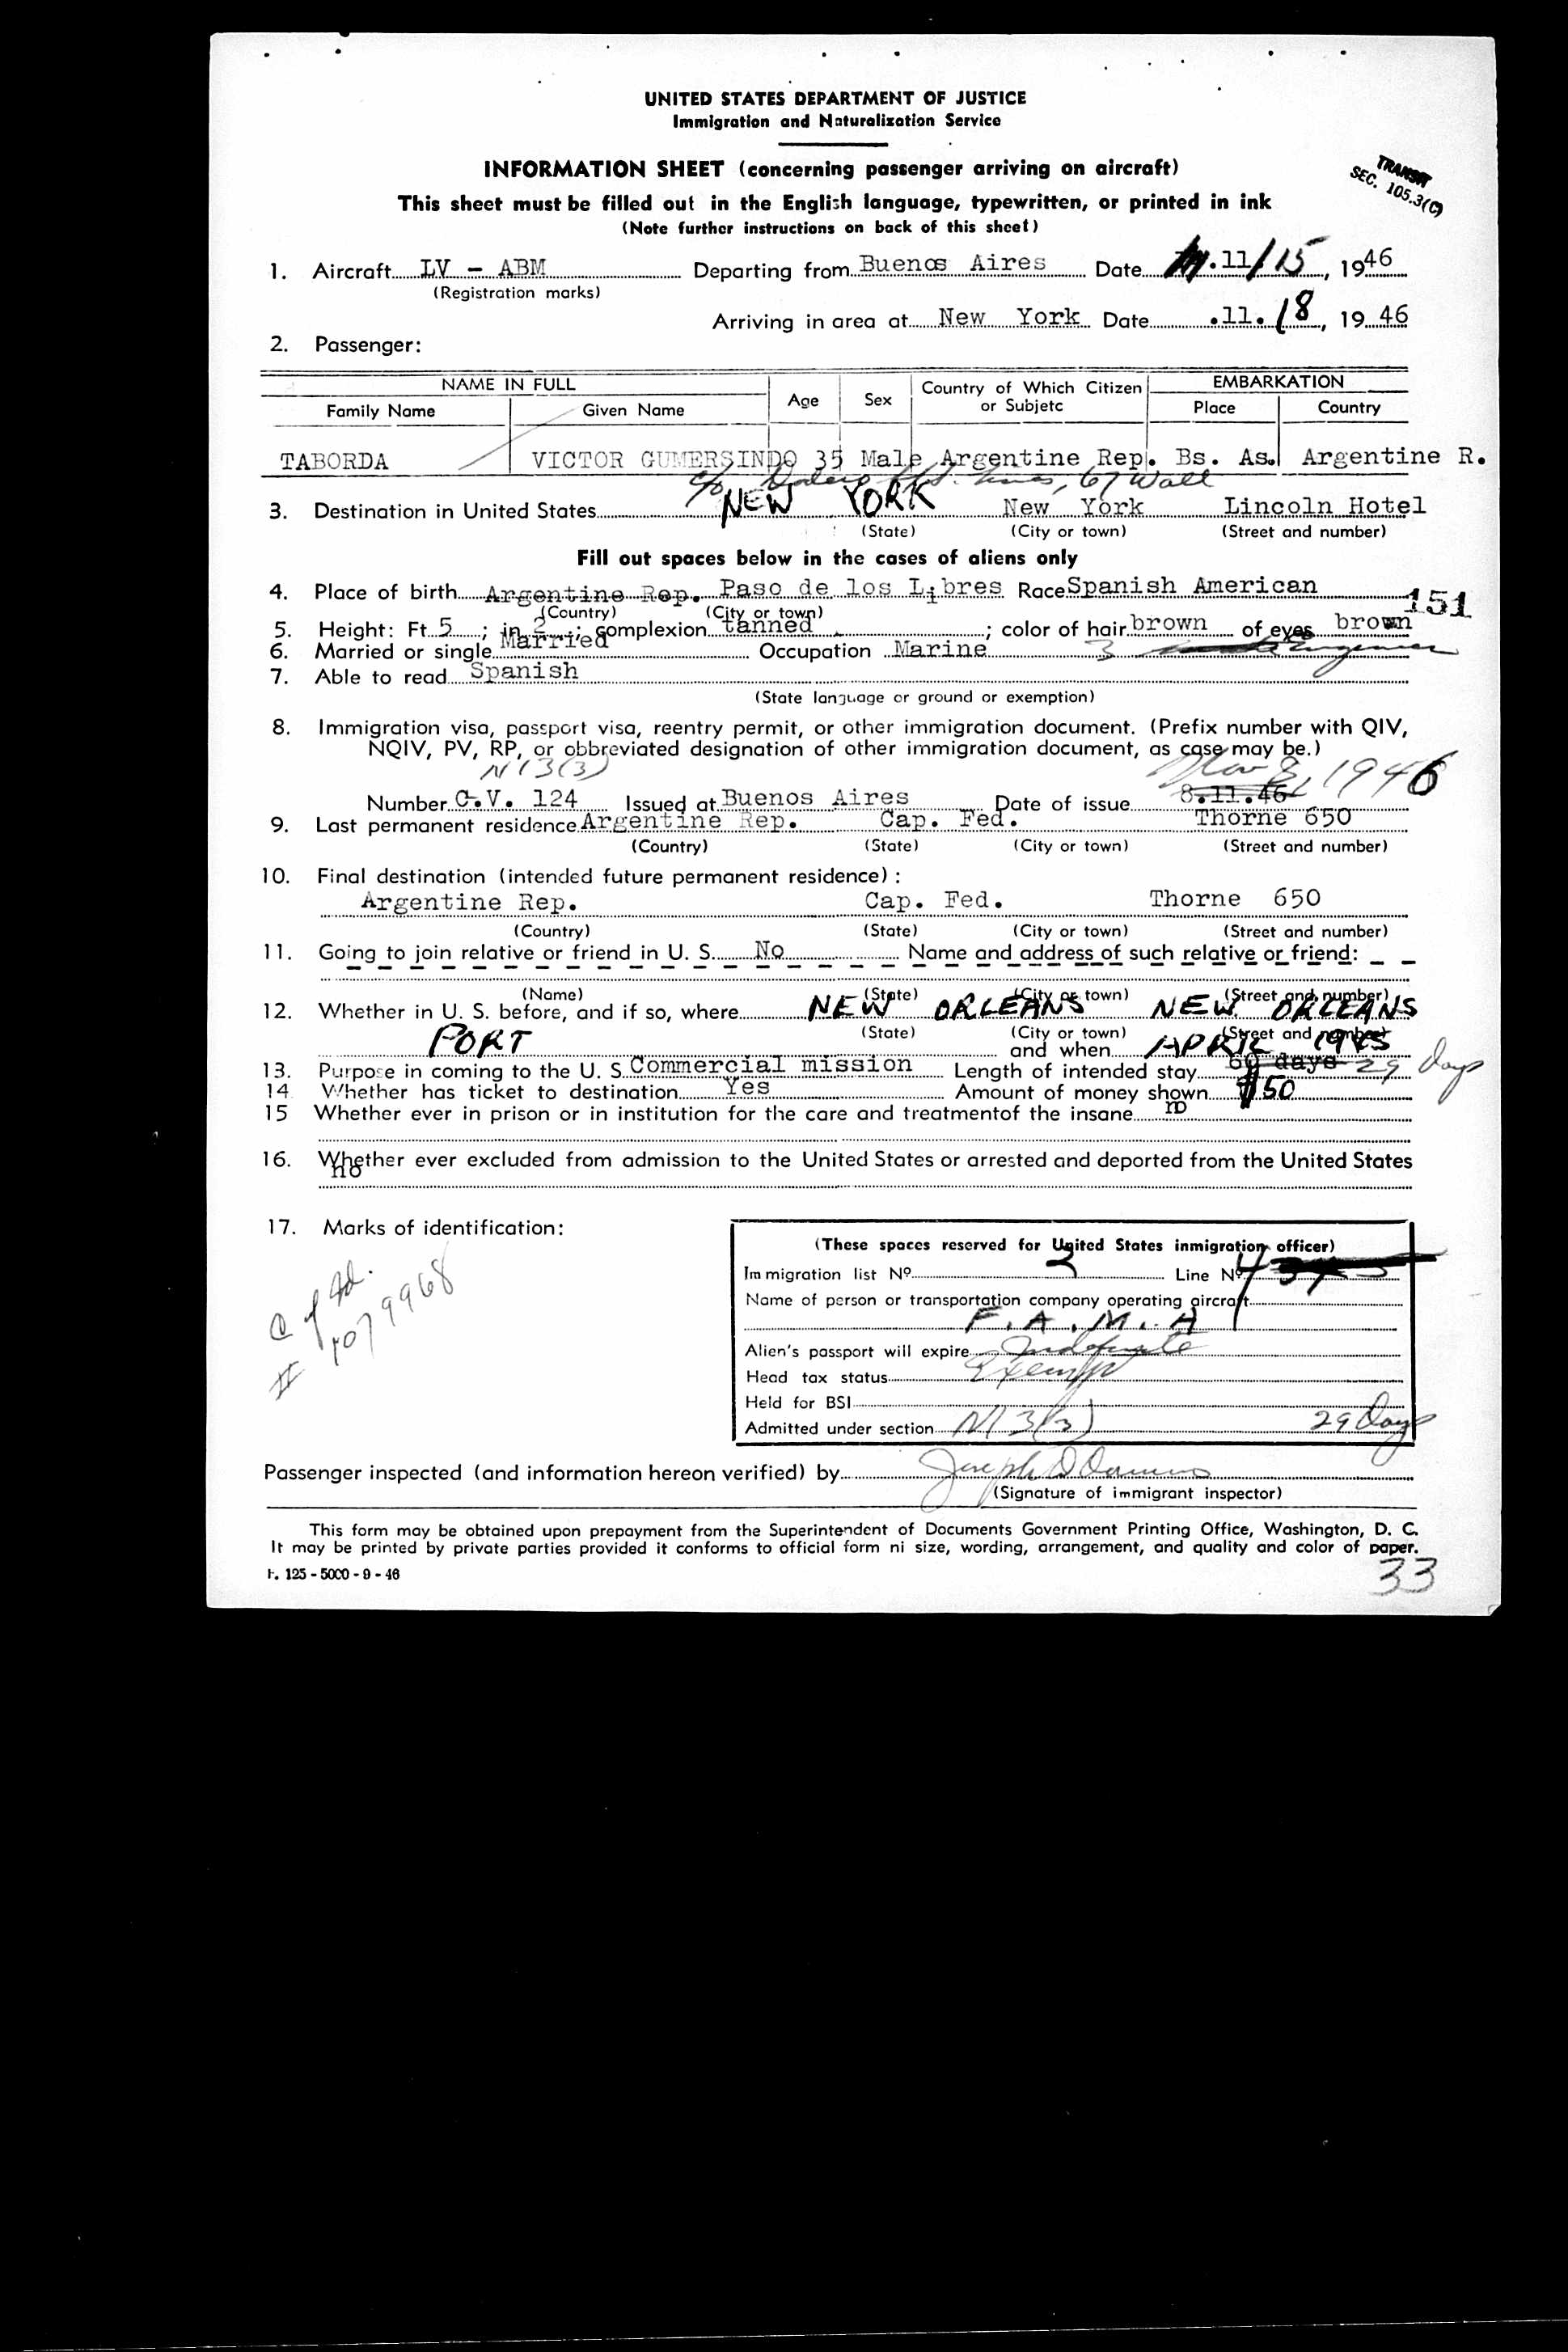 UNITED STATES DEPARTMENT OF JUSTICE
Immigration and Naturalization Service
INFORMATION SHEET (concerning passenger arriving on aircraft)
TRANSIT
SEC. 105.3(C)
This sheet must be filled out in the English language, typewritten, or printed in ink
(Note further instructions on back of this sheet)
1. Aircraft LV - ABM Departing from Buenos Aires Date .11/15, 1946
(Registration marks)
Arriving in area at New York Date .11.18, 19 46
2. Passenger:
NAME IN FULL Age Sex Country of Which Citizen or Subjetc EMBARKATION
Family Name Given Name Place Country
TABORDA VICTOR GUMERSINDO 35 Male Argentine Rep. Bs. As. Argentine R.
c/o Lines, 67 Wall
3. Destination in United States NEW YORK New York Lincoln Hotel
(State) (City or town) (Street and number)
Fill out spaces below in the cases of aliens only
4. Place of birth Argentine Rep. Paso de los Libres Race Spanish American
151
(Country) (City or town)
5. Height: Ft. 5 ; in 2 ; complexion tanned ; color of hair brown of eyes brown
6. Married or single Married Occupation Marine 3
7. Able to read Spanish
(State language or ground or exemption)
8. Immigration visa, passport visa, reentry permit, or other immigration document. (Prefix number with QIV,
NQIV, PV, RP, or obbreviated designation of other immigration document, as case may be.)
N13(3) Nov 8, 1946
Number C.V. 124 Issued at Buenos Aires Date of issue 8.11.46
9. Last permanent residence Argentine Rep. Cap. Fed. Thorne 650
(Country) (State) (City or town) (Street and number)
10. Final destination (intended future permanent residence) :
Argentine Rep. Cap. Fed. Thorne 650
(Country) (State) (City or town) (Street and number)
11. Going to join relative or friend in U. S. No Name and address of such relative or friend:
(Name) (State) (City or town) (Street and number)
12. Whether in U. S. before, and if so, where NEW ORLEANS NEW ORLEANS
(State) (City or town) (Street and number)
PORT and when APRIL 1945
13. Purpose in coming to the U. S. Commercial mission Length of intended stay 60 days 29 days
14 Whether has ticket to destination Yes Amount of money shown $50
15 Whether ever in prison or in institution for the care and treatmentof the insane no
16. Whether ever excluded from admission to the United States or arrested and deported from the United States
no
17. Marks of identification:
(These spaces reserved for United States inmigration officer)
Immigration list Nº 3 Line Nº 4
Name of person or transportation company operating aircraft
F. A. M. A
Alien's passport will expire Indefinite
Head tax status Exempt
Held for BSI
Admitted under section N13(3) 29 Days
Passenger inspected (and information hereon verified) by Joseph D
(Signature of immigrant inspector)
This form may be obtained upon prepayment from the Superintendent of Documents Government Printing Office, Washington, D. C.
It may be printed by private parties provided it conforms to official form ni size, wording, arrangement, and quality and color of paper.
F. 125 - 5000 - 9 - 46
33